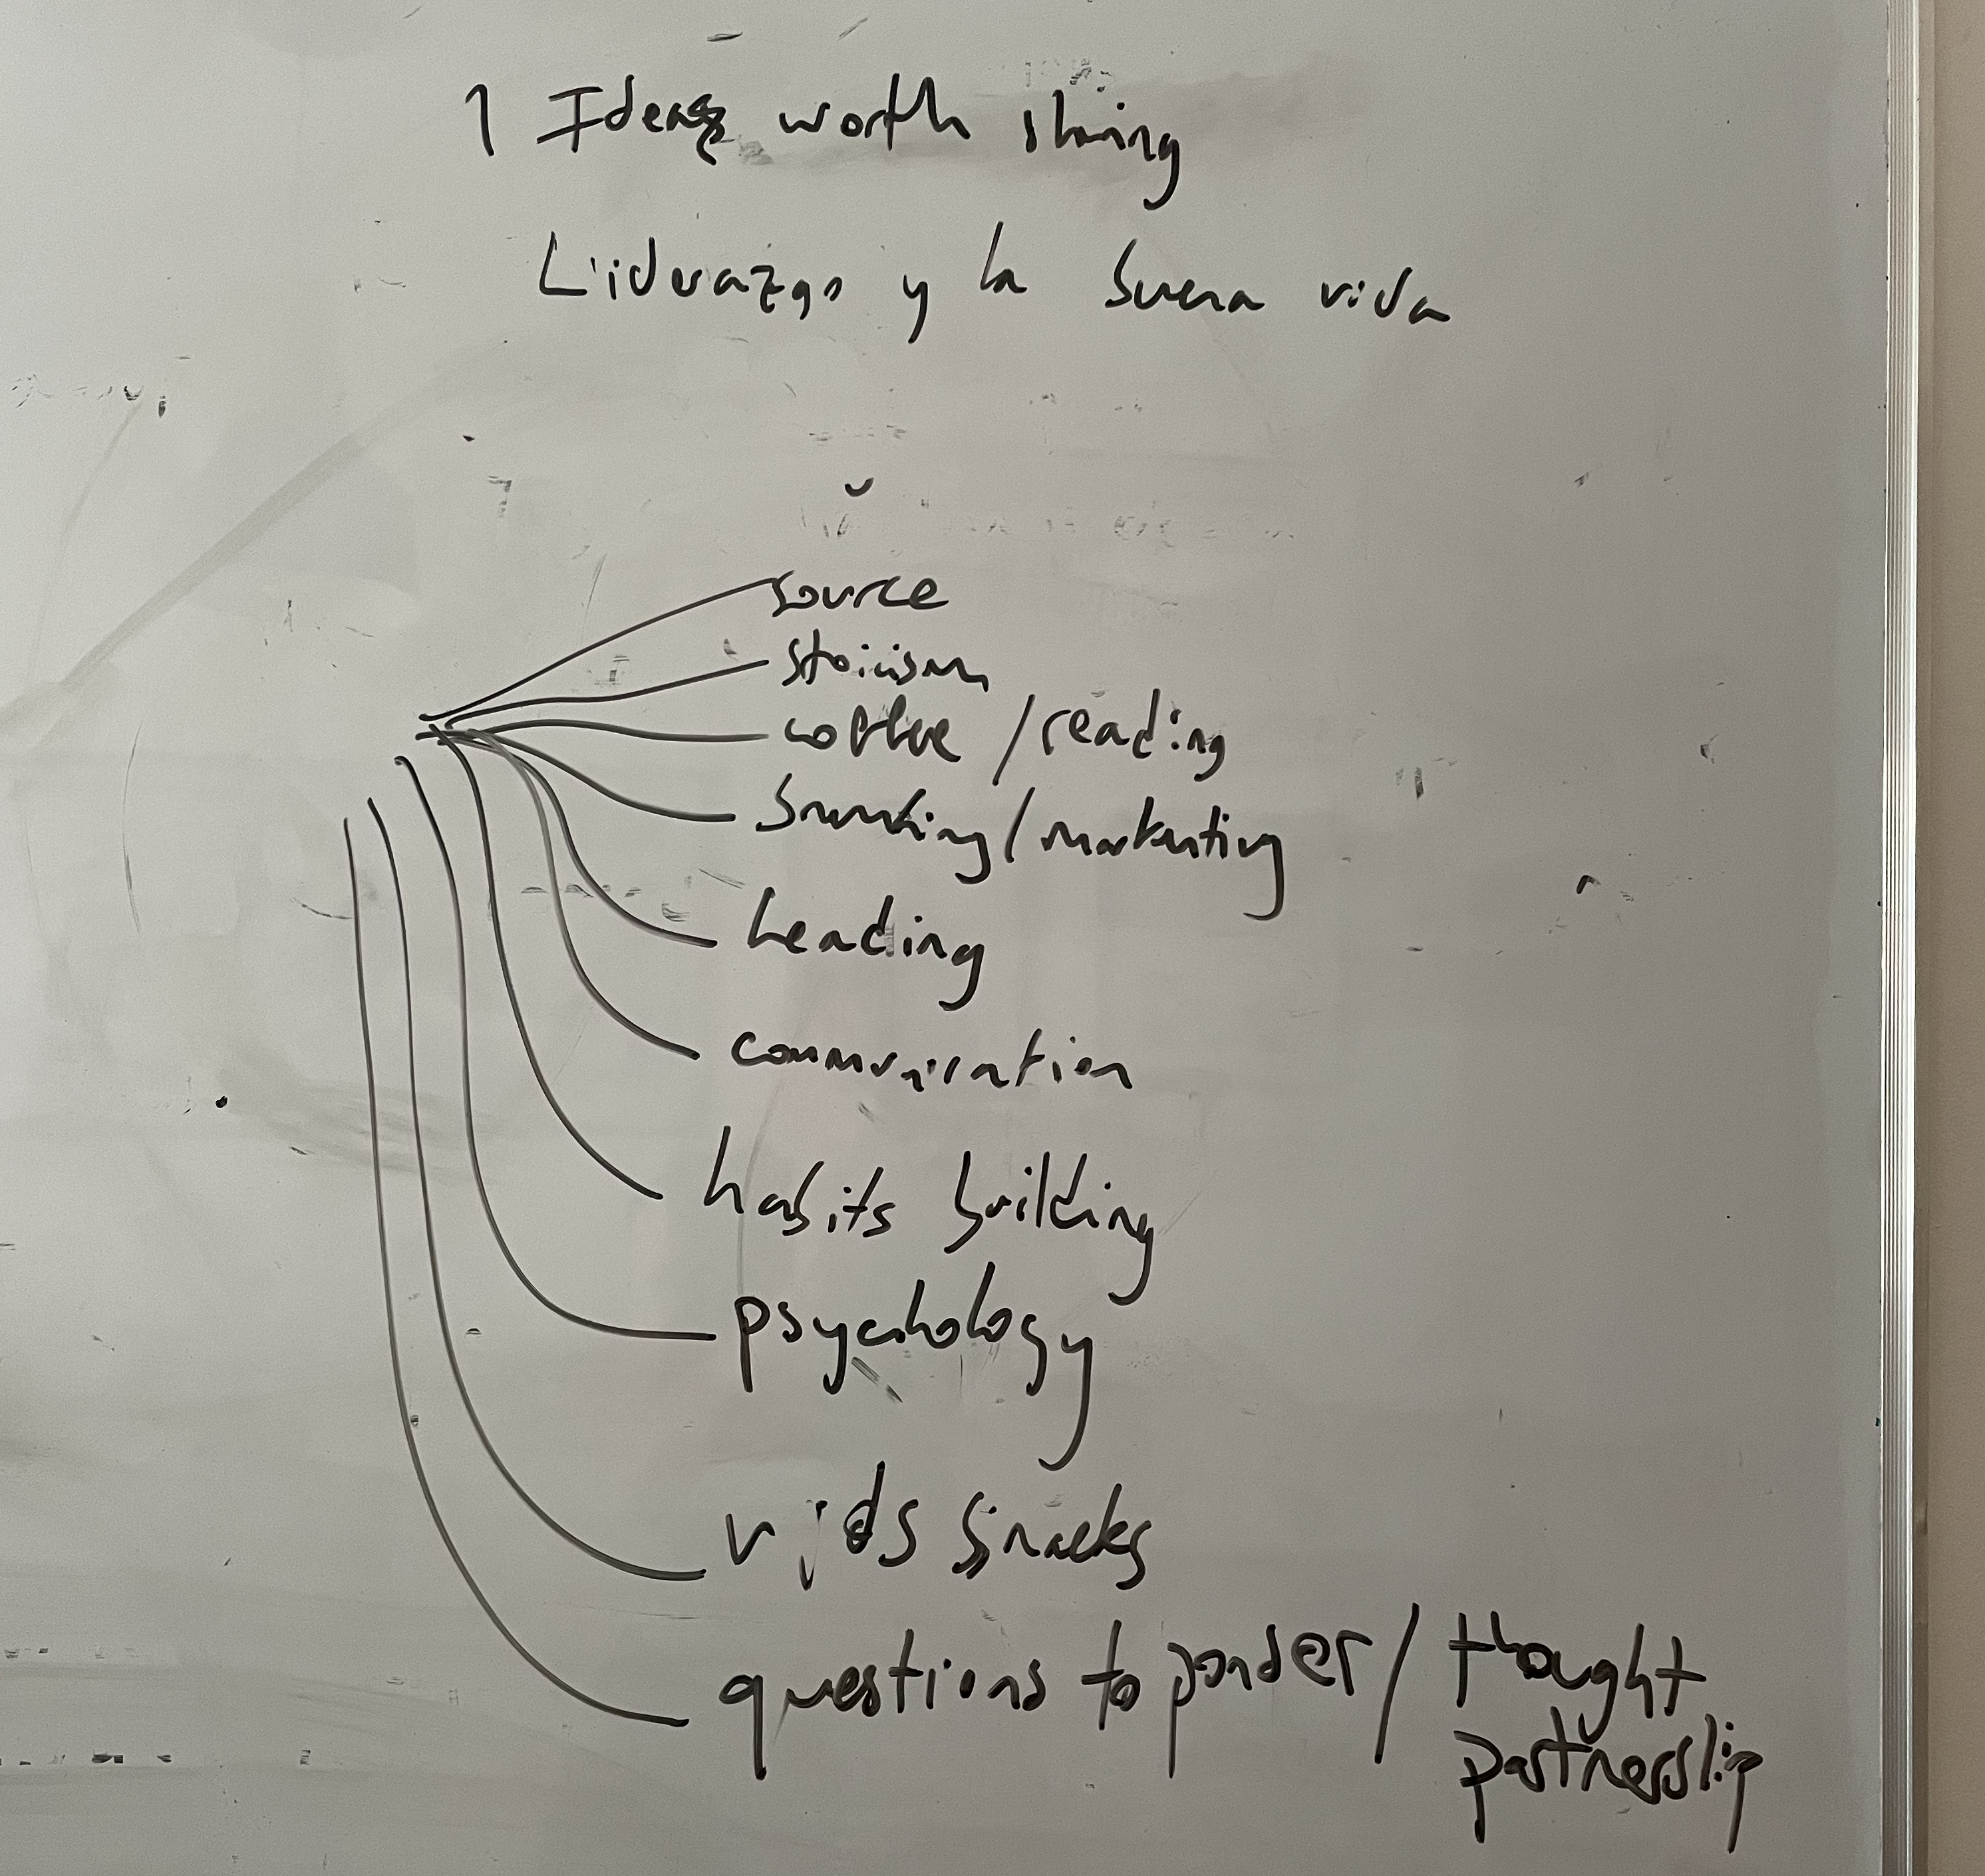 1 Ideas worth sharing
Liderazgo y la buena vida
source
stoicism
coffee / reading
branding / marketing
leading
communication
habits building
psychology
vids snacks
questions to ponder / thought
partnership